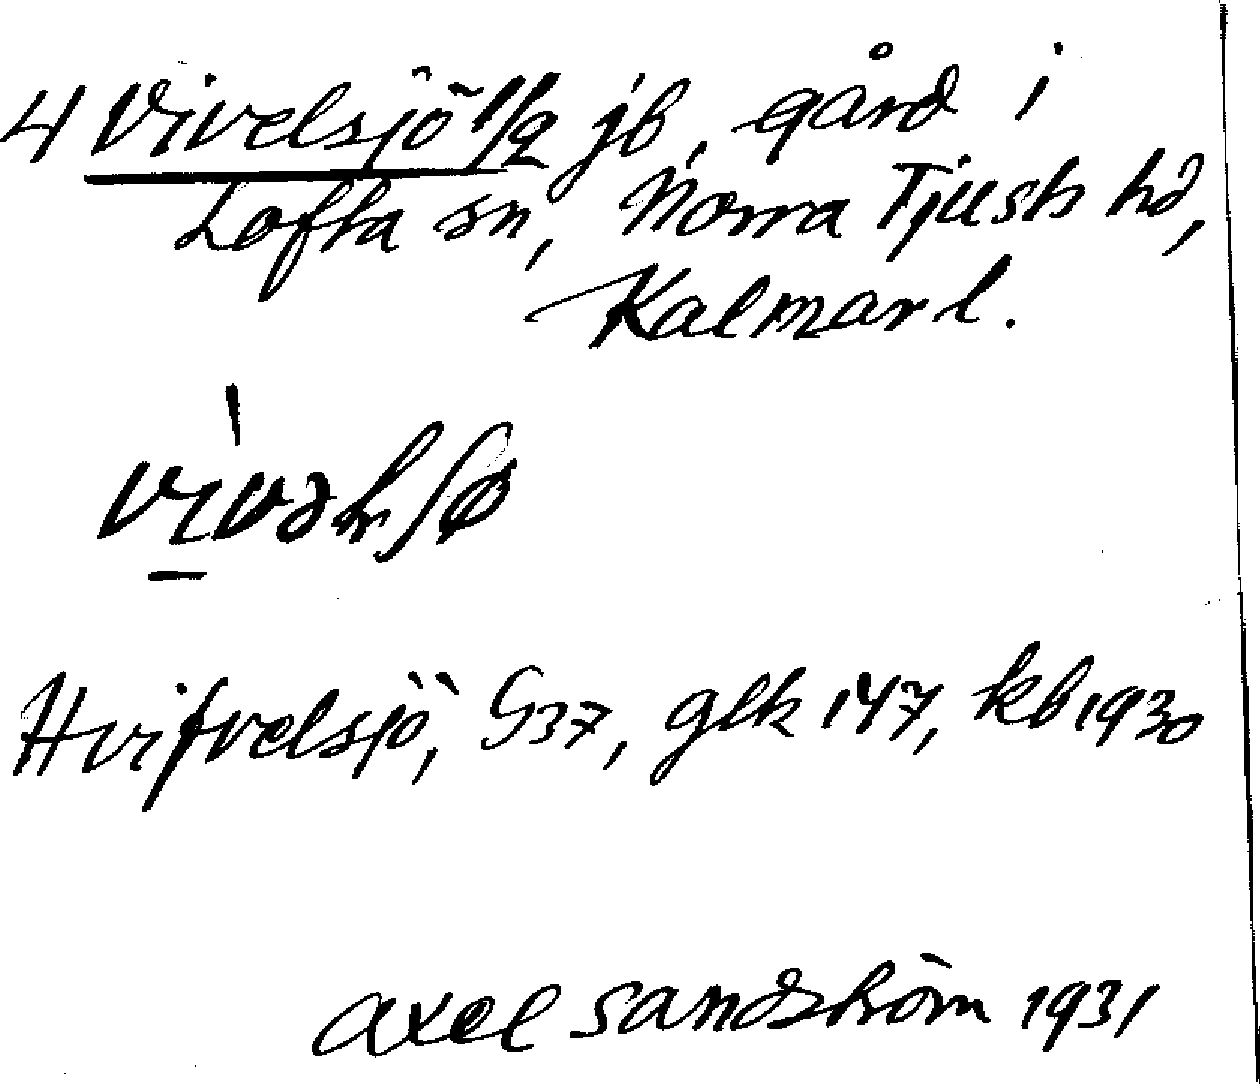 4 Vivelsjö 1/2 jb, gård i
Lofta sn, Norra Tjusts hd,
Kalmar l.
Hvifvelsjö, G37, glk 147, kb 1930
Axel Sandström 1931